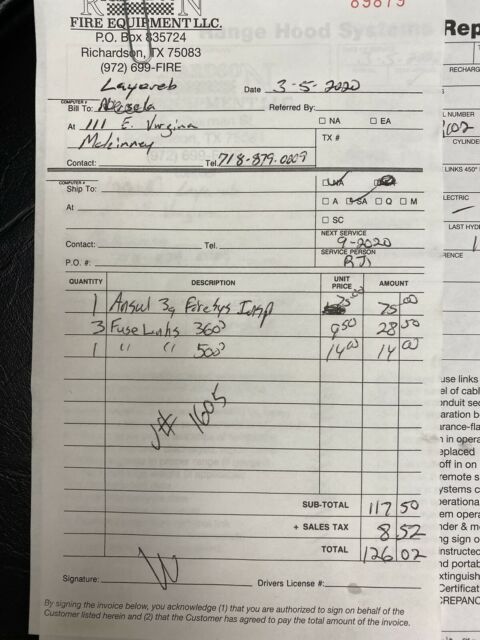 89879
FIRE EQUIPMENT LLC.
P.O. Box 835724
Richardson, TX 75083
(972) 699-FIRE
Date 3-5-2020
COMPUTER #
Bill To:
Referred By:
At 111 E. Virgina
NA EA
McKinney
TX #
Contact: Tel. 718-879-0009
COMPUTER #
Ship To:
NA
At
A SA Q M
SC
NEXT SERVICE
9-2020
Contact: Tel.
SERVICE PERSON
P.O. #:
QUANTITY DESCRIPTION UNIT PRICE AMOUNT
1 Ansul 3g Firesys Insp 75 00 75 00
3 Fuse Links 360° 9 50 28 50
1 " " 500° 14 00 14 00
J# 1605
SUB-TOTAL 117 50
+ SALES TAX 8 52
TOTAL 126 02
Signature: Drivers License #:
By signing the invoice below, you acknowledge (1) that you are authorized to sign on behalf of the
Customer listed herein and (2) that the Customer has agreed to pay the total amount of the invoice.
Rep
RECHARG
NUMBER
CYLINDE
LINKS 450°
LECTRIC
LAST HYD
RENCE
use links
el of cabl
onduit sec
aration b
arance-fla
n in opera
eplaced
off in on
remote s
ystems c
perationa
em opera
nder & m
ng sign o
nstructed
nd portab
xtinguish
Certificat
CREPANC